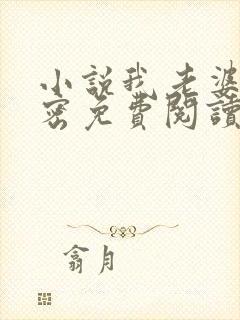 小說我老婆
密免費閱讀
翕月